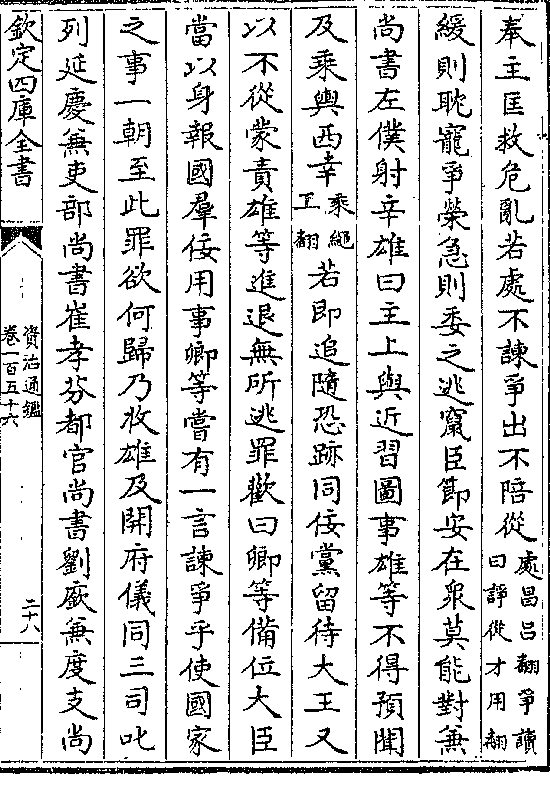 奉主匡救危亂若處不諫爭出不陪從處昌呂翻爭讀曰諍從才用翻
緩則耽寵爭榮急則委之逃竄臣節安在衆莫能對兼
尚書左僕射辛雄曰主上與近習圖事雄等不得預聞
及乘輿西幸乘繩正翻若即追隨恐跡同佞黨留待大王又
以不從蒙責雄等進退無所逃罪歡曰卿等備位大臣
當以身報國羣佞用事卿等嘗有一言諫爭乎使國家
之事一朝至此罪欲何歸乃收雄及開府儀同三司叱
列延慶兼吏部尚書崔孝芬都官尚書劉廞兼度支尚
欽定四庫全書
資治通鑑
卷一百五十六
二十八